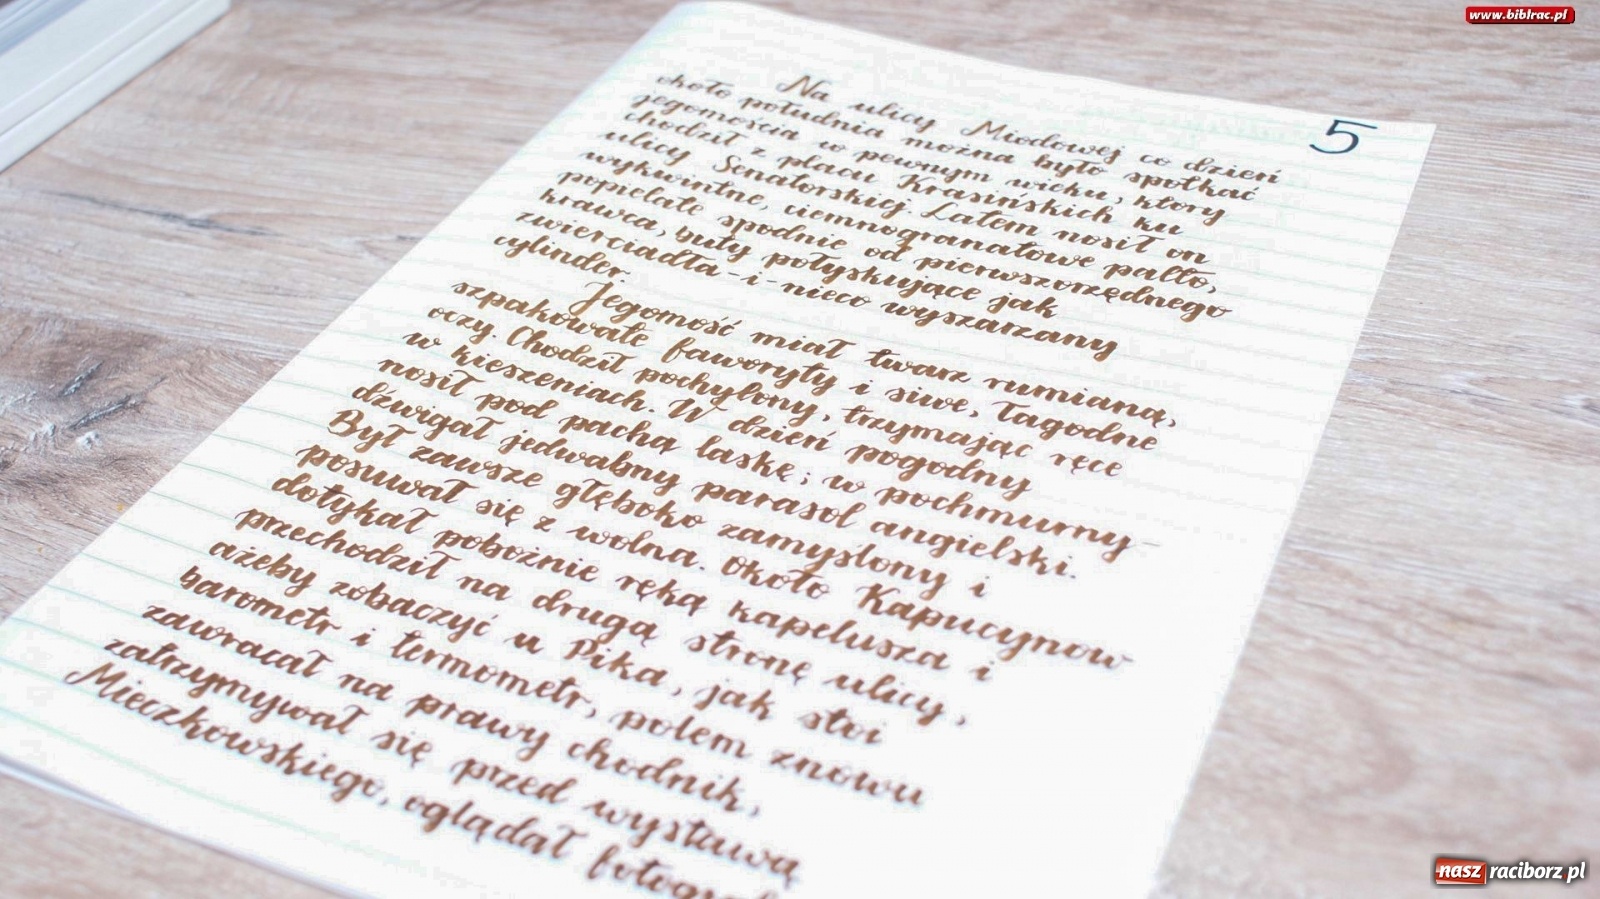 www.biblrac.pl
5
Na ulicy Miodowej co dzień
około południa można było spotkać
jegomościa w pewnym wieku, który
chodził z placu Krasińskich ku
ulicy Senatorskiej. Latem nosił on
wykwintne, ciemnogranatowe palto,
popielate spodnie od pierwszorzędnego
krawca, buty połyskujące jak
zwierciadła - i - nieco wyszarzany
cylinder.
Jegomość miał twarz rumianą,
szpakowate faworyty i siwe, łagodne
oczy. Chodził pochylony, trzymając ręce
w kieszeniach. W dzień pogodny
nosił pod pachą laskę; w pochmurny -
dźwigał jedwabny parasol angielski.
Był zawsze głęboko zamyślony i
posuwał się z wolna. Około Kapucynow
dotykał pobożnie ręką kapelusza i
przechodził na drugą stronę ulicy,
ażeby zobaczyć u Pika, jak stoi
barometr i termometr, potem znowu
zawracał na prawy chodnik,
zatrzymywał się przed wystawą
Mieczkowskiego, oglądał
nasz raciborz.pl